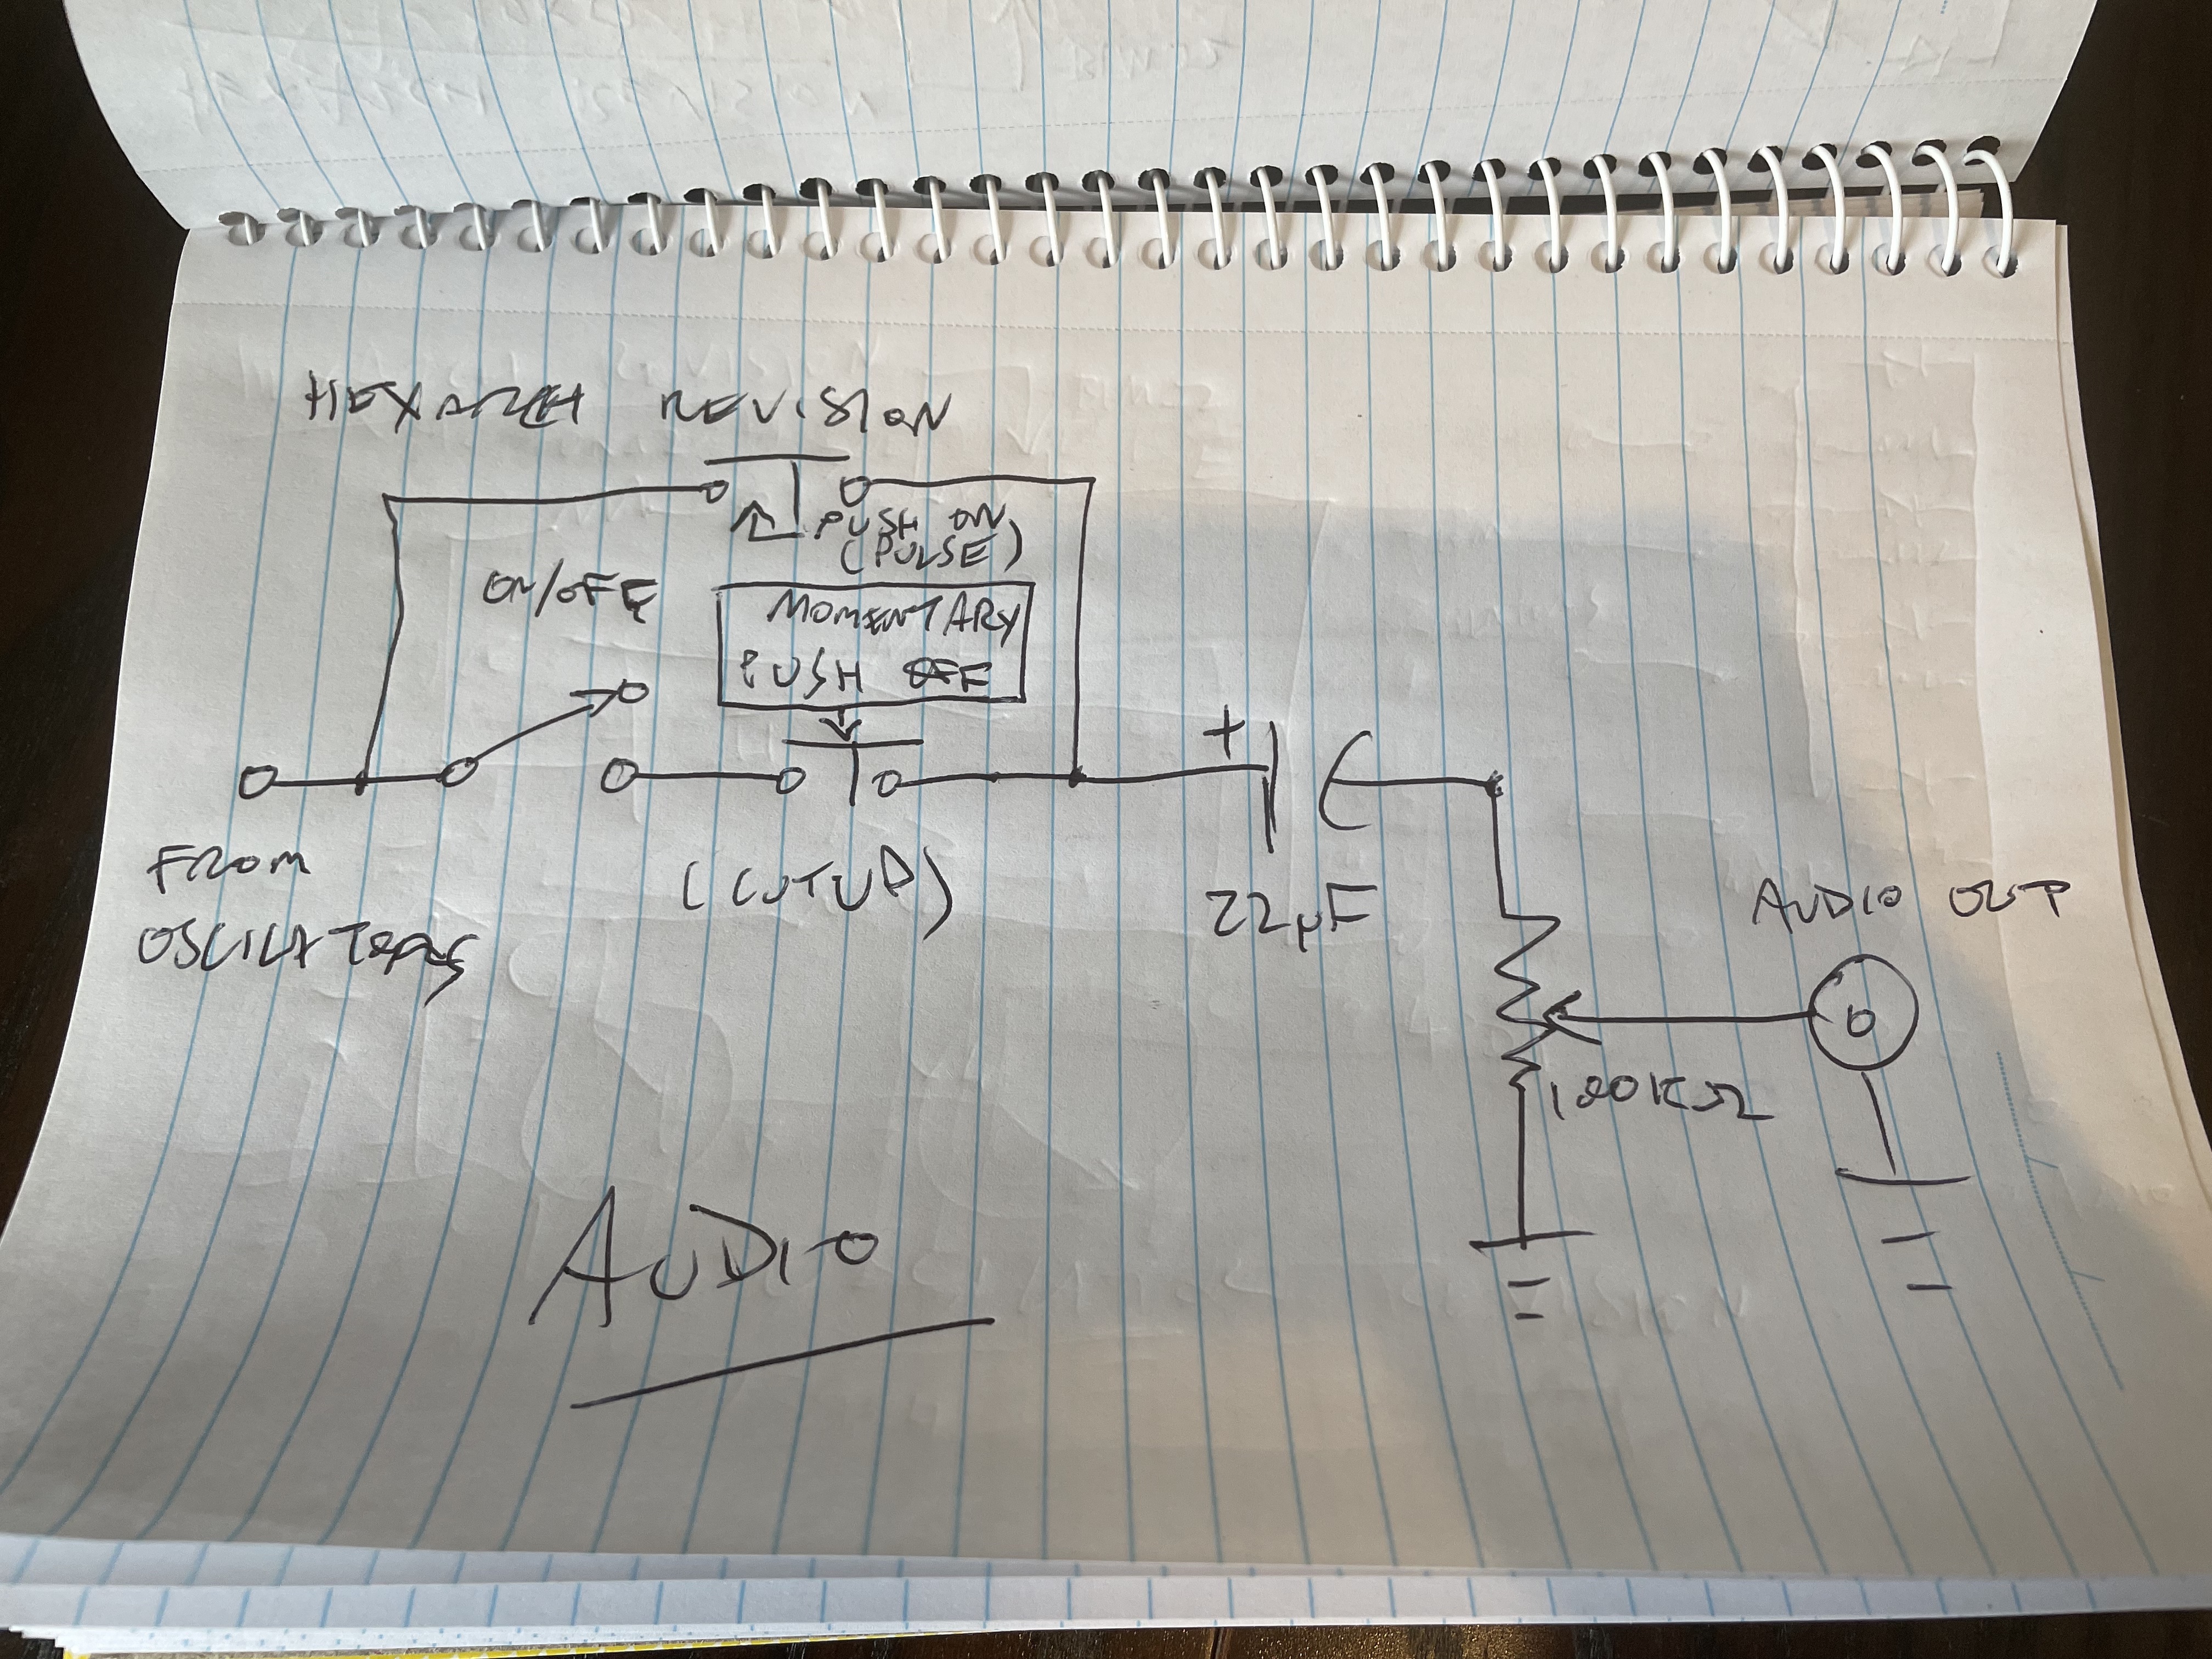 HEXARCH REVISION
PUSH ON
(PULSE)
ON/OFF
MOMENTARY
PUSH OFF
+
FROM
OSCILLATORS
(CUTUP)
22µF
AUDIO OUT
100KΩ
AUDIO